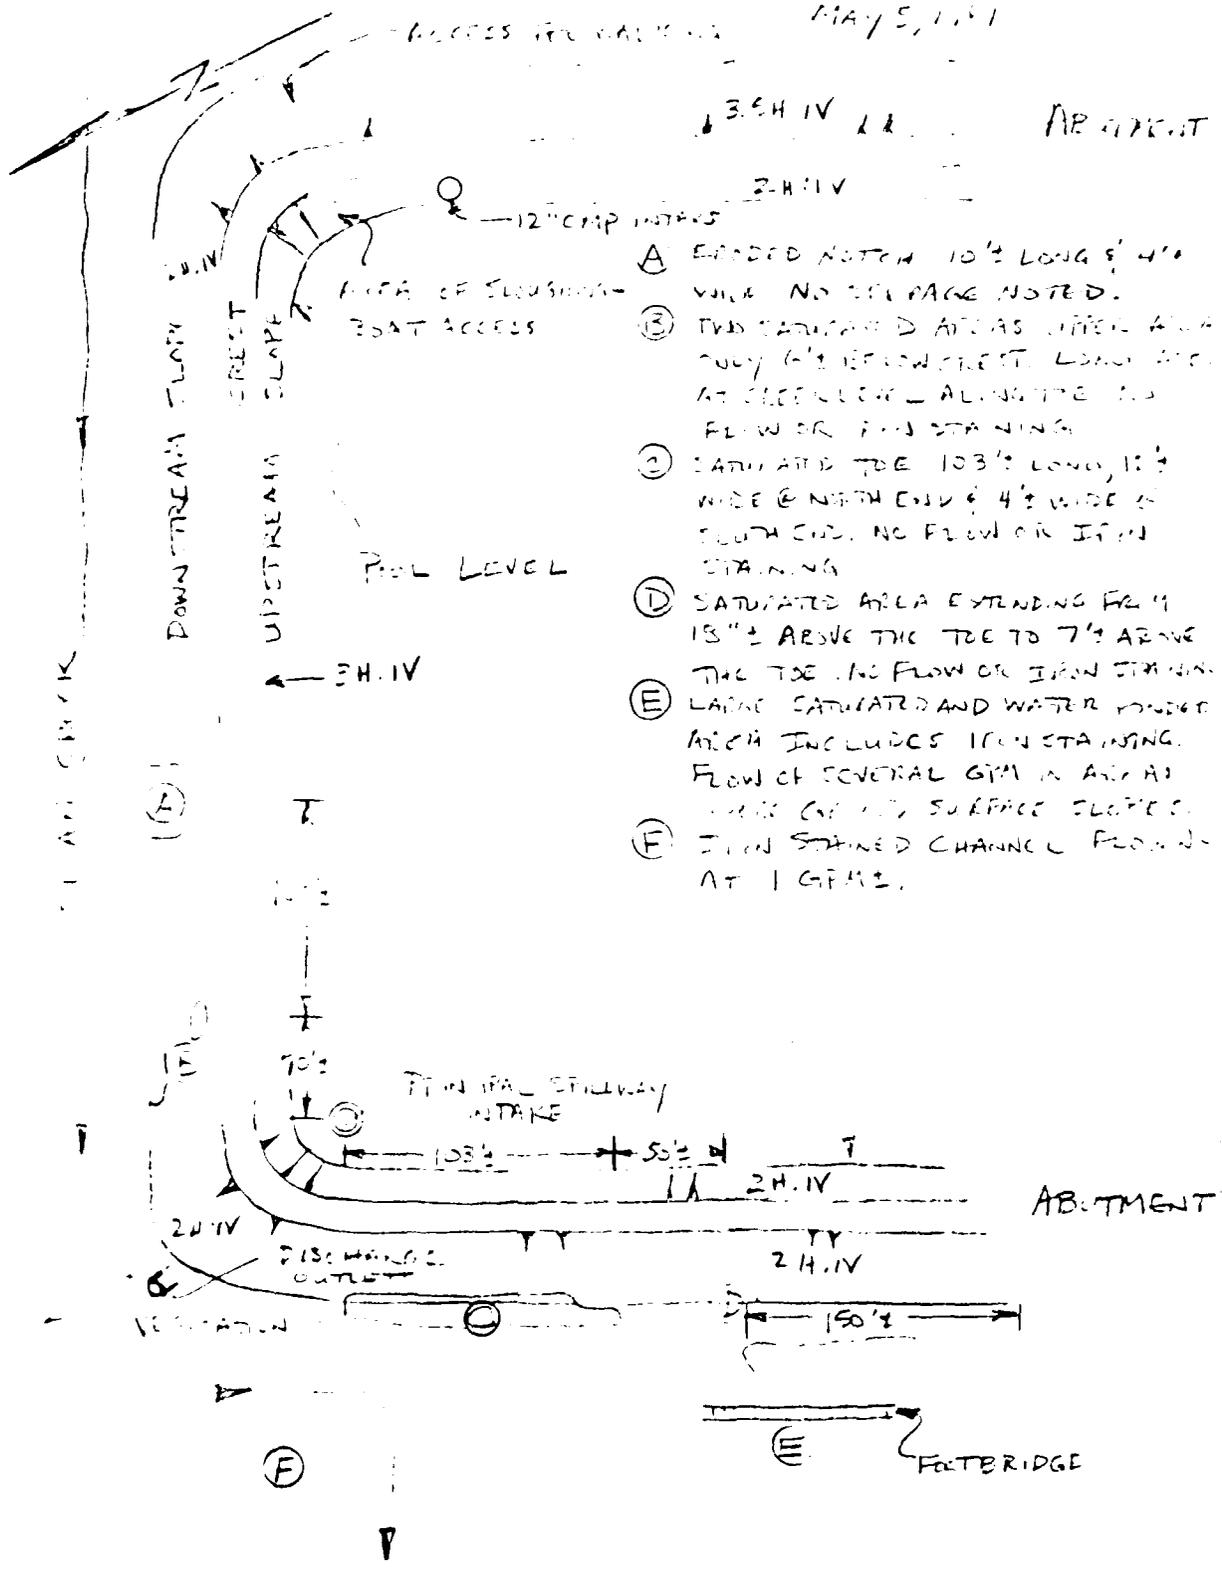 ACCESS FOR
MAY 5,
3.5H.1V
ABUTMENT
2H.1V
12" CMP INTAKE
2H.1V
AREA OF SLOUGHING-
BOAT ACCESS
DOWNSTREAM SLOPE
CREST
UPSTREAM SLOPE
(A) ERODED NOTCH 10'± LONG & 4'±
WIDE NO SEEPAGE NOTED.
(B) TWO SATURATED AREAS UPPER AREA
ONLY 6'± BELOW CREST.
AT CREEK LEVEL ALONG TOE NO
FLOW OR IRON STAINING
SATURATED TOE 103'± LONG, 12'±
WIDE @ NORTH END & 4'± WIDE @
SOUTH END. NO FLOW OR IRON
STAINING
(D) SATURATED AREA EXTENDING FROM
18"± ABOVE THE TOE TO 7'± ABOVE
THE TOE. NO FLOW OR IRON STAINING
(E) LARGE SATURATED AND WATER PONDED
AREA INCLUDES IRON STAINING.
FLOW OF SEVERAL GPM IN AREAS
SURFACE SLOPES.
(F) IRON STAINED CHANNEL FLOWING
AT 1 GPM±.
POOL LEVEL
3H.1V
(A)
70'±
PRINCIPAL SPILLWAY
INTAKE
103'±
50'±
2H.1V
ABUTMENT
2H.1V
DISCHARGE
OUTLET
2H.1V
VEGETATION
150'±
(E)
FOOTBRIDGE
(F)